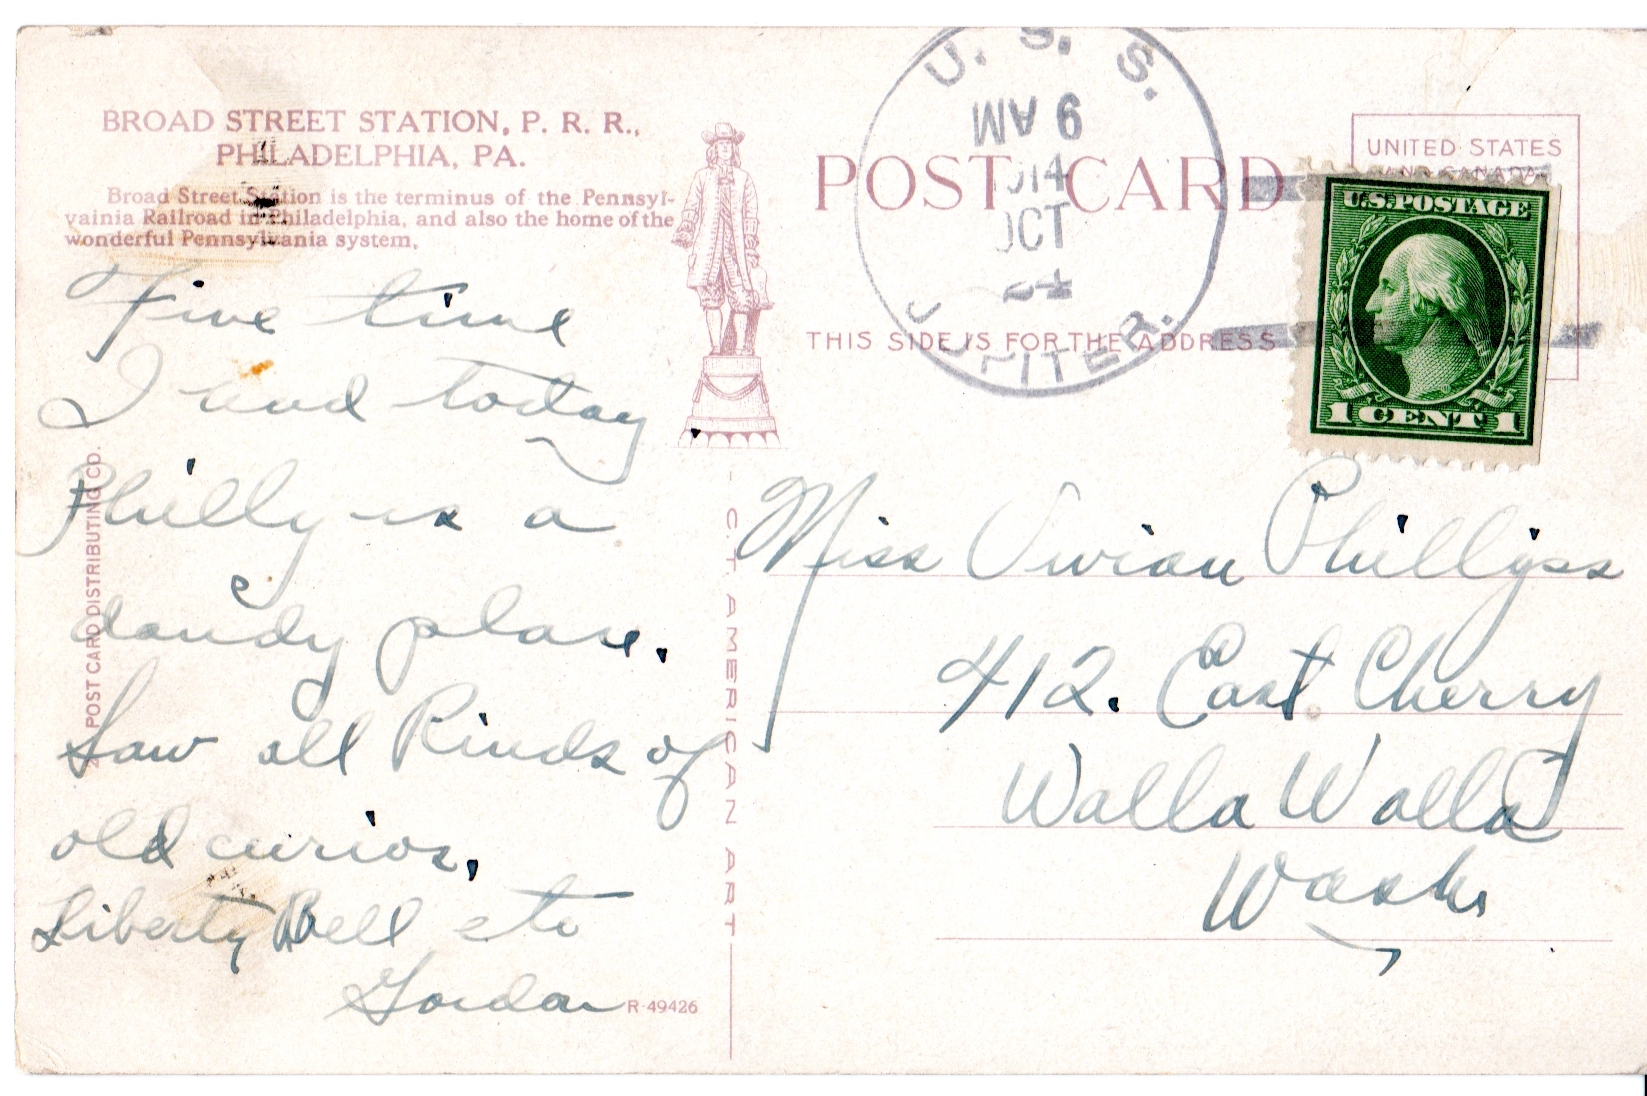 BROAD STREET STATION, P. R. R.,
PHILADELPHIA, PA.
Broad Street Station is the terminus of the Pennsyl-
vainia Railroad in Philadelphia, and also the home of the
wonderful Pennsylvania system.
Fine time
I had today
Philly is a
dandy place.
Saw all Kinds of
old curios,
Liberty Bell etc
Gordon
R-49426
POST CARD DISTRIBUTING CO.
C.T. AMERICAN ART
POST CARD
THIS SIDE IS FOR THE ADDRESS
U. S. S.
9 AM
14
OCT
JUPITER.
UNITED STATES
AND CANADA
U.S. POSTAGE
1 CENT 1
Miss Vivian Phillips
412. East Cherry
Walla Walla
Wash.